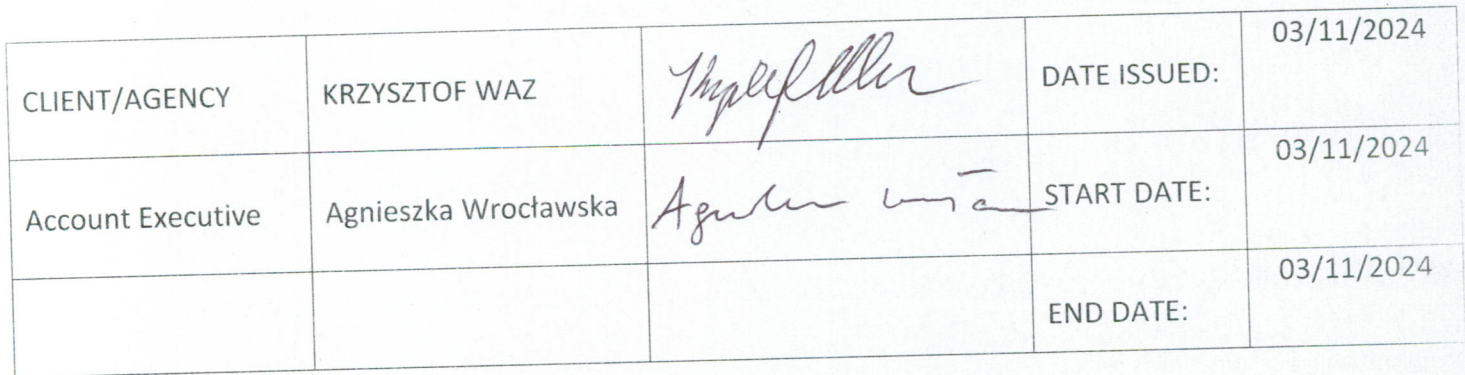 CLIENT/AGENCY KRZYSZTOF WAZ DATE ISSUED: 03/11/2024
Account Executive Agnieszka Wrocławska START DATE: 03/11/2024
END DATE: 03/11/2024